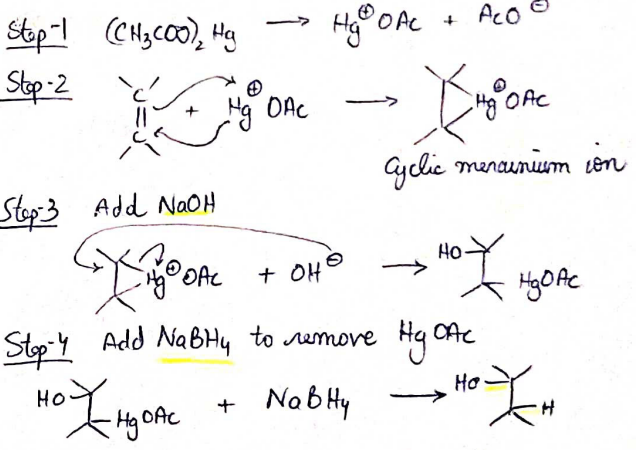 Step-1 (CH3COO)2 Hg → Hg⊕ OAc + AcO ⊖
Step-2
C || C + Hg⊕ OAc → Hg⊕ OAc
Cyclic mercurinium ion
Step-3 Add NaOH
Hg⊕ OAc + OH⊖ → HO HgOAc
Step-4 Add NaBH4 to remove Hg OAc
HO HgOAc + NaBH4 → HO H